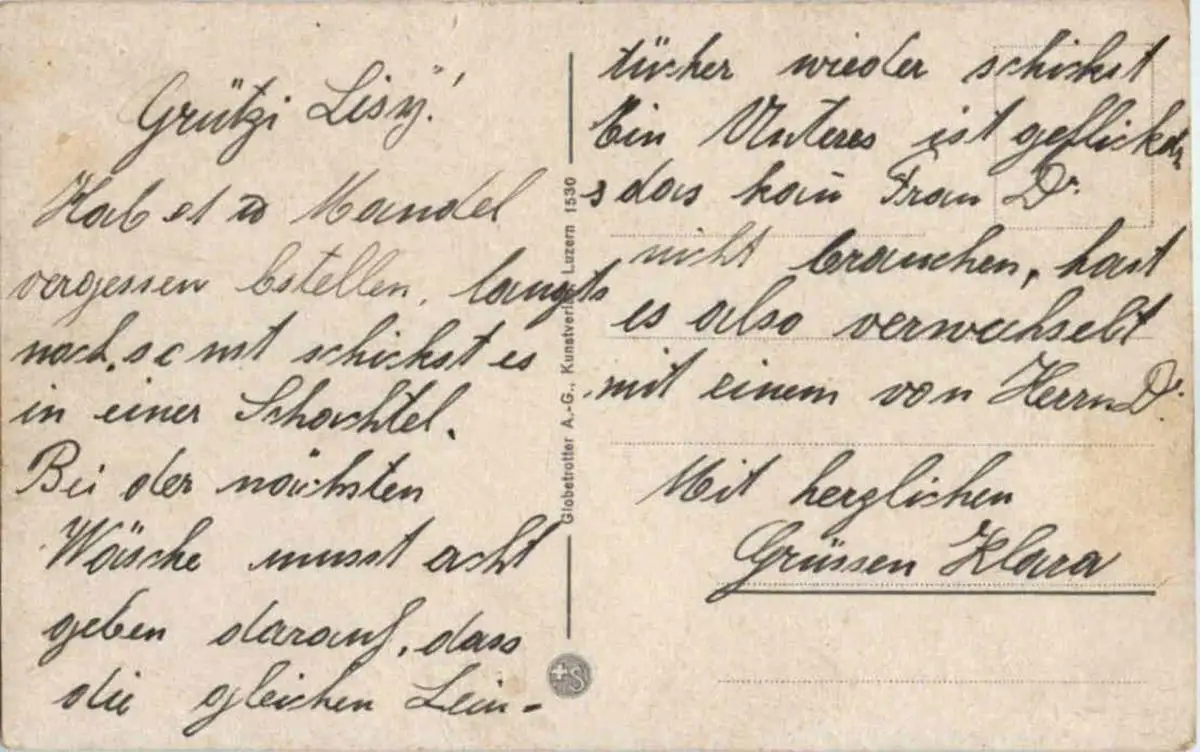 Grützi Lisy!
Hab et Mandel
vergessen bstellen, langts
noch, sonst schickst es
in einer Schachtel.
Bei der nächsten
Wäsche musst acht
geben darauf, dass
die gleichen Lein-
tücher wieder schickst
Ein Unteres ist geflickt,
das kañ Frau Dr.
nicht brauchen, hast
es also verwechselt
mit einem von Herrn Dr.
Mit herzlichen
Grüssen Klara
Globetrotter A.-G., Kunstverl Luzern 1530
S